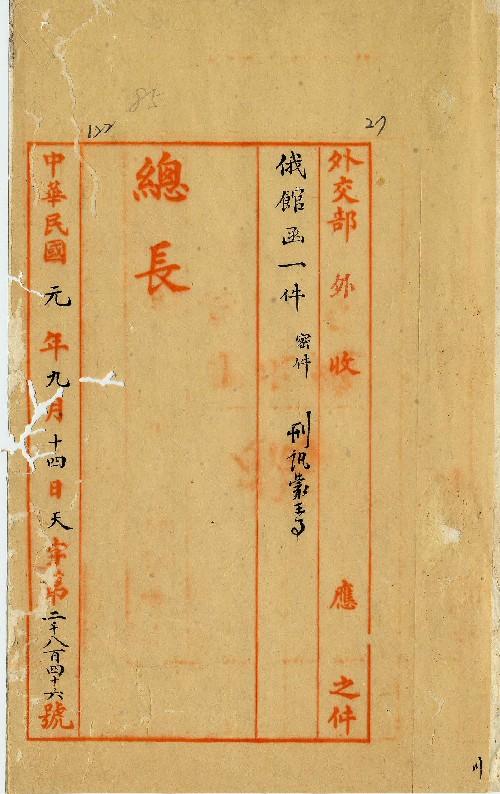 27
外交部 外 收 應 之件
俄館函一件 密件 刑訊蒙王事
總長
中華民國元年九月十四日天字第二千八百四十六號
85